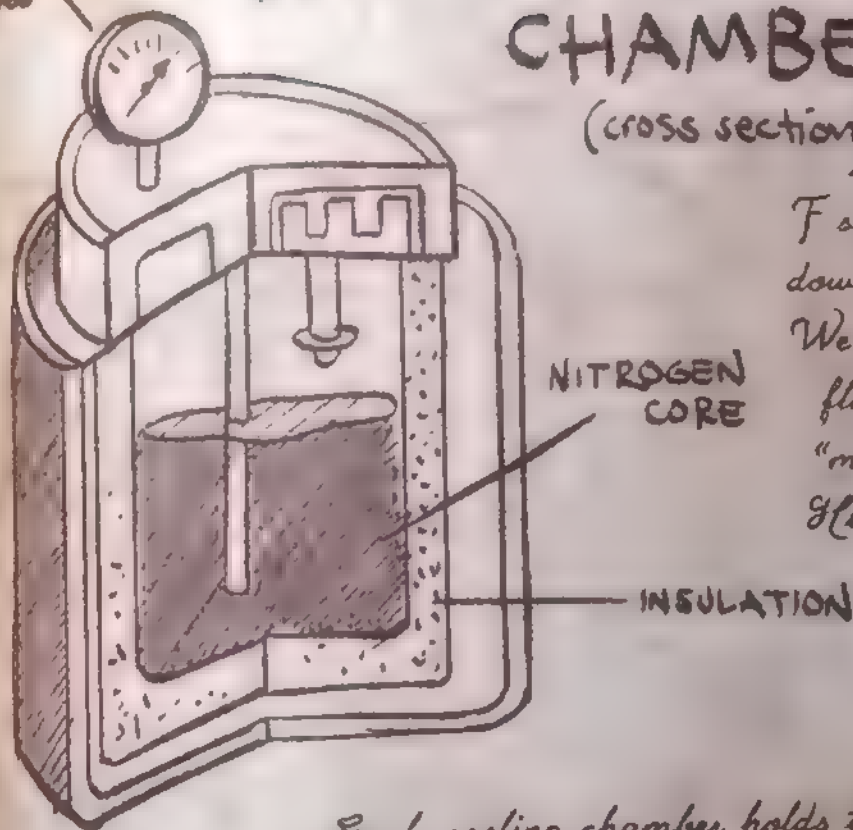 CHAMBE
(cross section
dow
We
fl
"m
gl
NITROGEN
CORE
INSULATION
cooling chamber holds